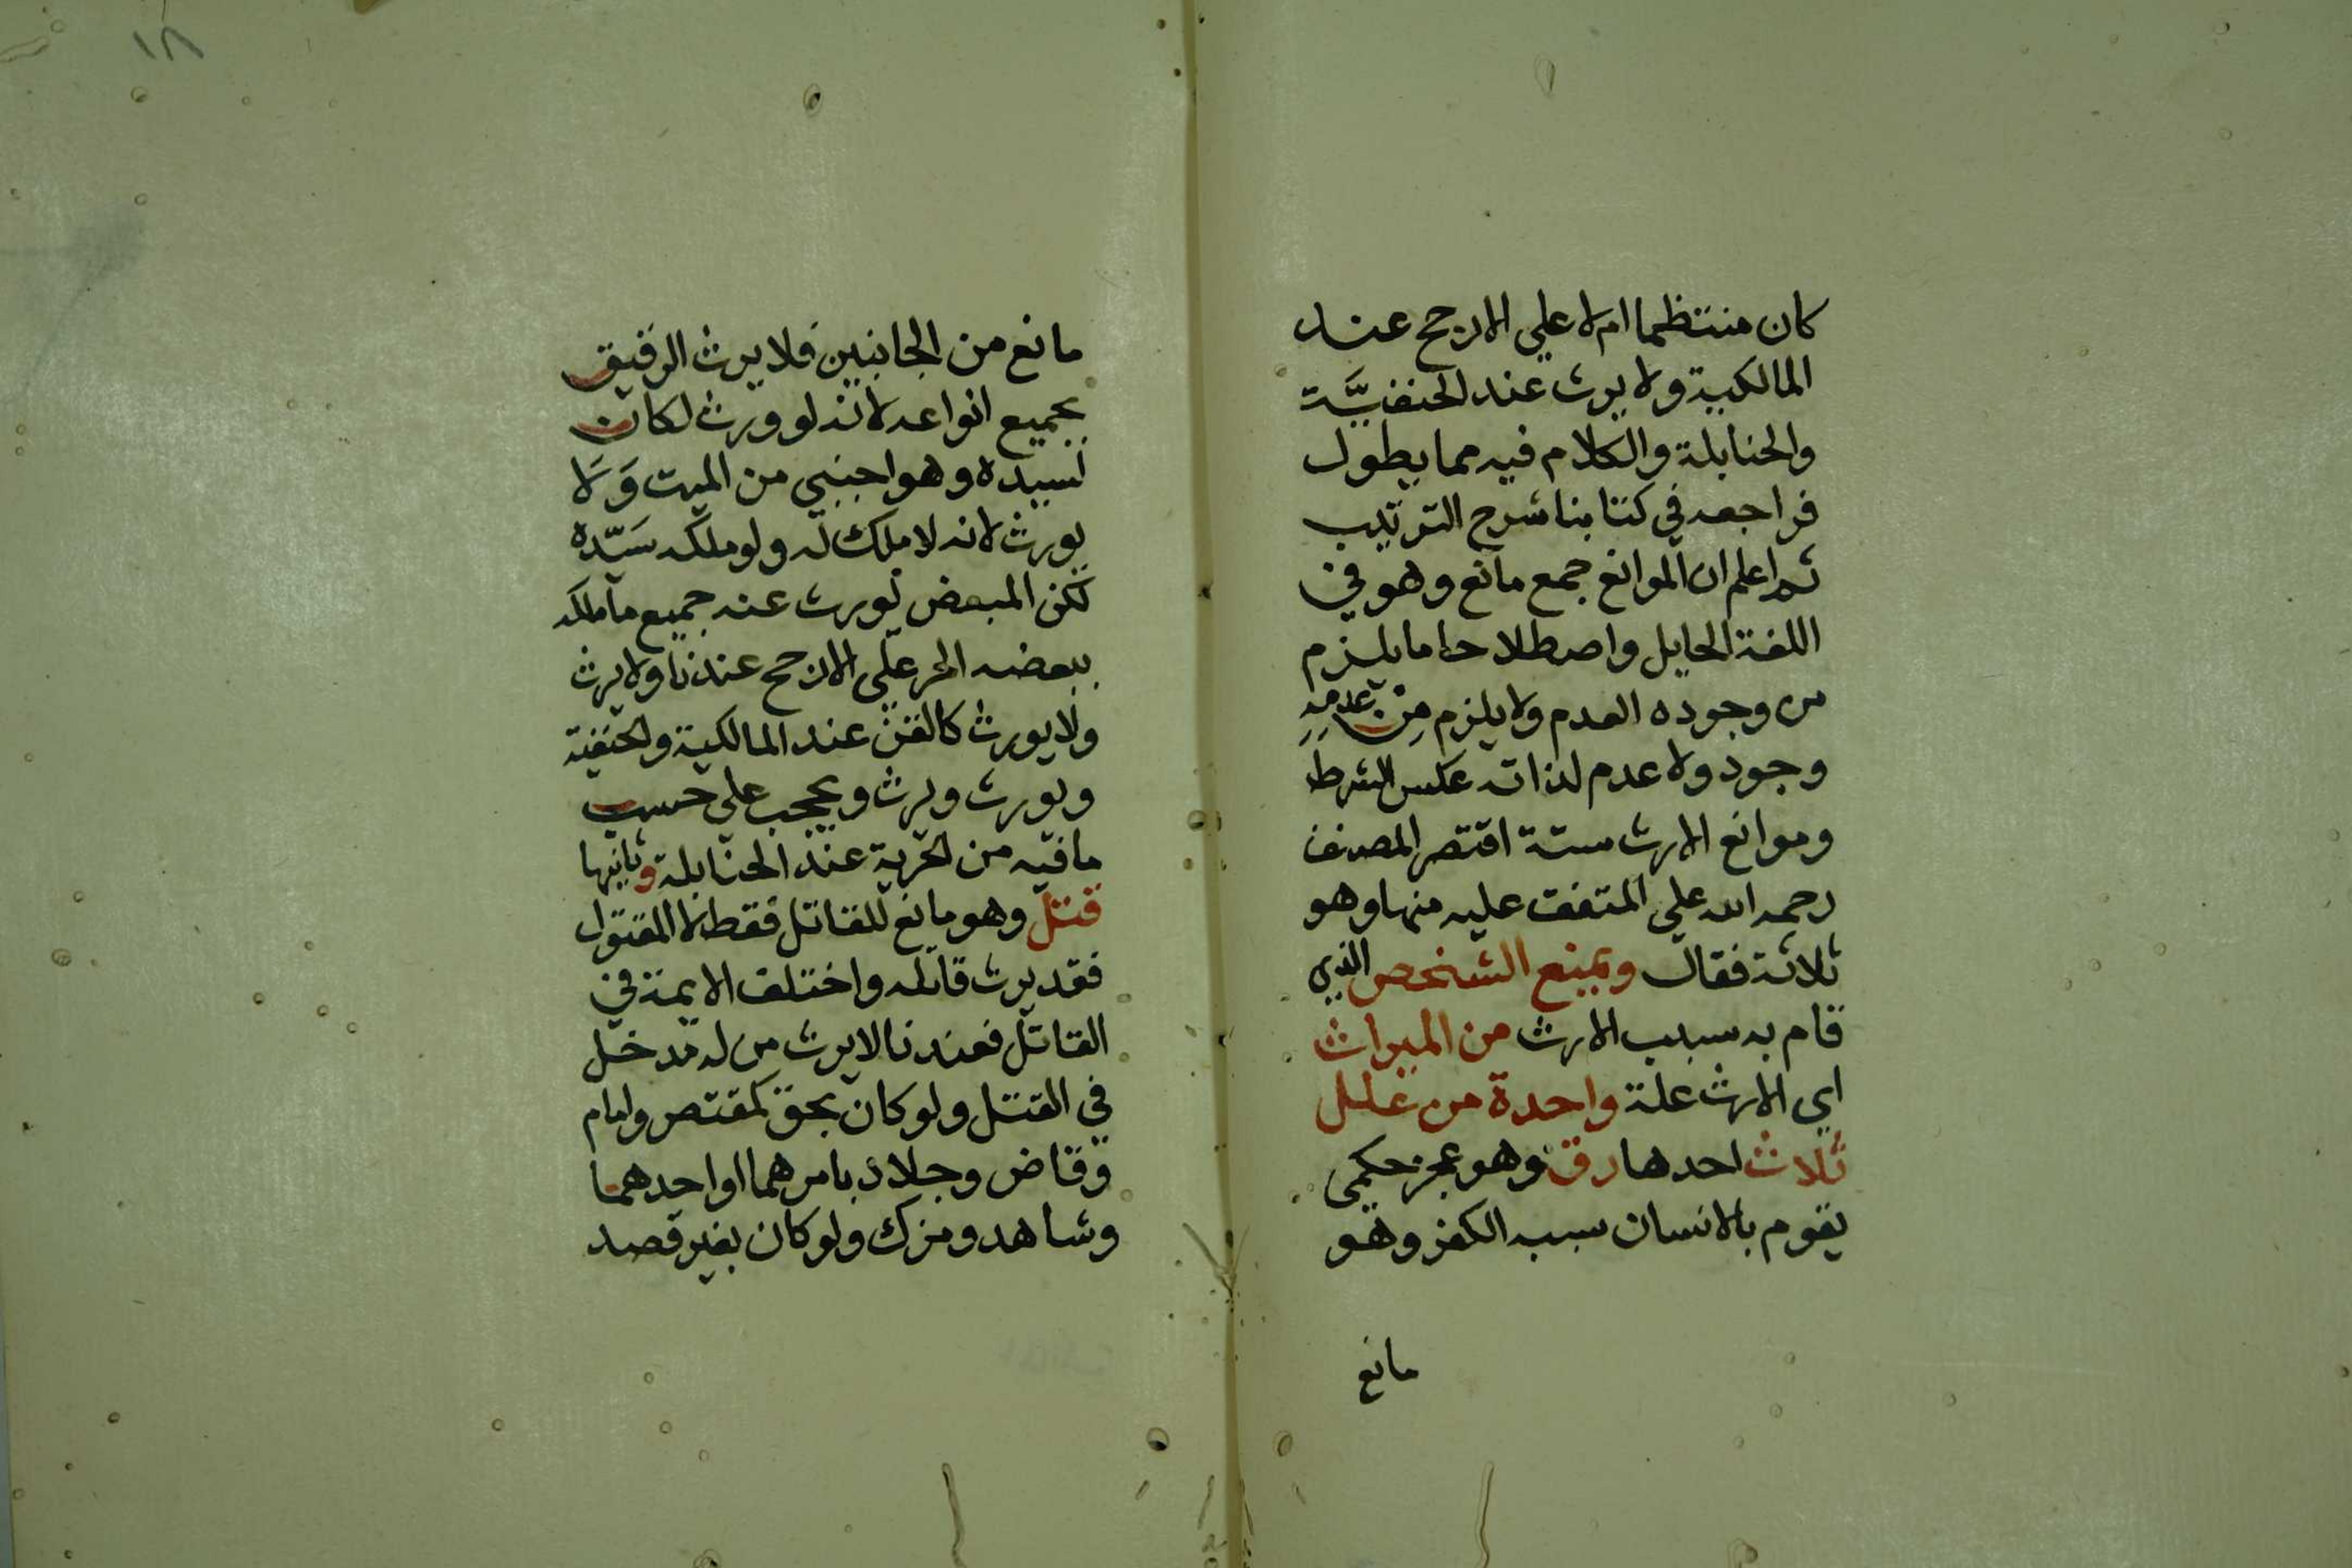 كان منتظما ام لا علي الارجح عند
المالكية ولا يرث عند الحنفيَّة
والحنابلة والكلام فيه مما يطول
فراجعه في كتابنا شرح الترتيب
ثم اعلم ان الموانع جمع مانع وهو في
اللغة الحايل واصطلاحا ما يلزم
من وجوده العدم ولا يلزم مِنْ عدمِهِ
وجود ولا عدم لذاته عكس الشرط
وموانع الارث ستة اقتصر المصنف
رحمه الله علي المتفق عليه منها وهو
ثلاثة فقال ويمنع الشخص الذي
قام به سبب الارث من الميراث
اي الارث علة واحدة من علل
ثلاث احدها رق وهو عجز حكمي
يقوم بالانسان سببه الكفر وهو
مانع
١٨
مانع من الجانبين فلا يرث الرقيق
بجميع انواعه لانه لو ورث لكان
لسيده وهو اجنبي من الميت وَلَا
يورث لانه لا ملك له ولو ملكه سَيّده
لكن المبعض يورث عنه جميع ما ملكه
ببعضه الحر علي الارجح عندنا ولا يرث
ولا يورث كالقن عند المالكية والحنفية
ويورث ويرث ويحجب علي حسب
ما فيه من الحرية عند الحنابلة وثانيها
قتل وهو مانع للقاتل فقط لا المقتول
فقد يرث قاتله واختلف الايمة في
القاتل فعندنا لا يرث من له مدخل
في القتل ولو كان بحق كمقتص وامام
وقاض وجلاد بامرهما او احدهما
وشاهد ومزك ولو كان بغير قصد